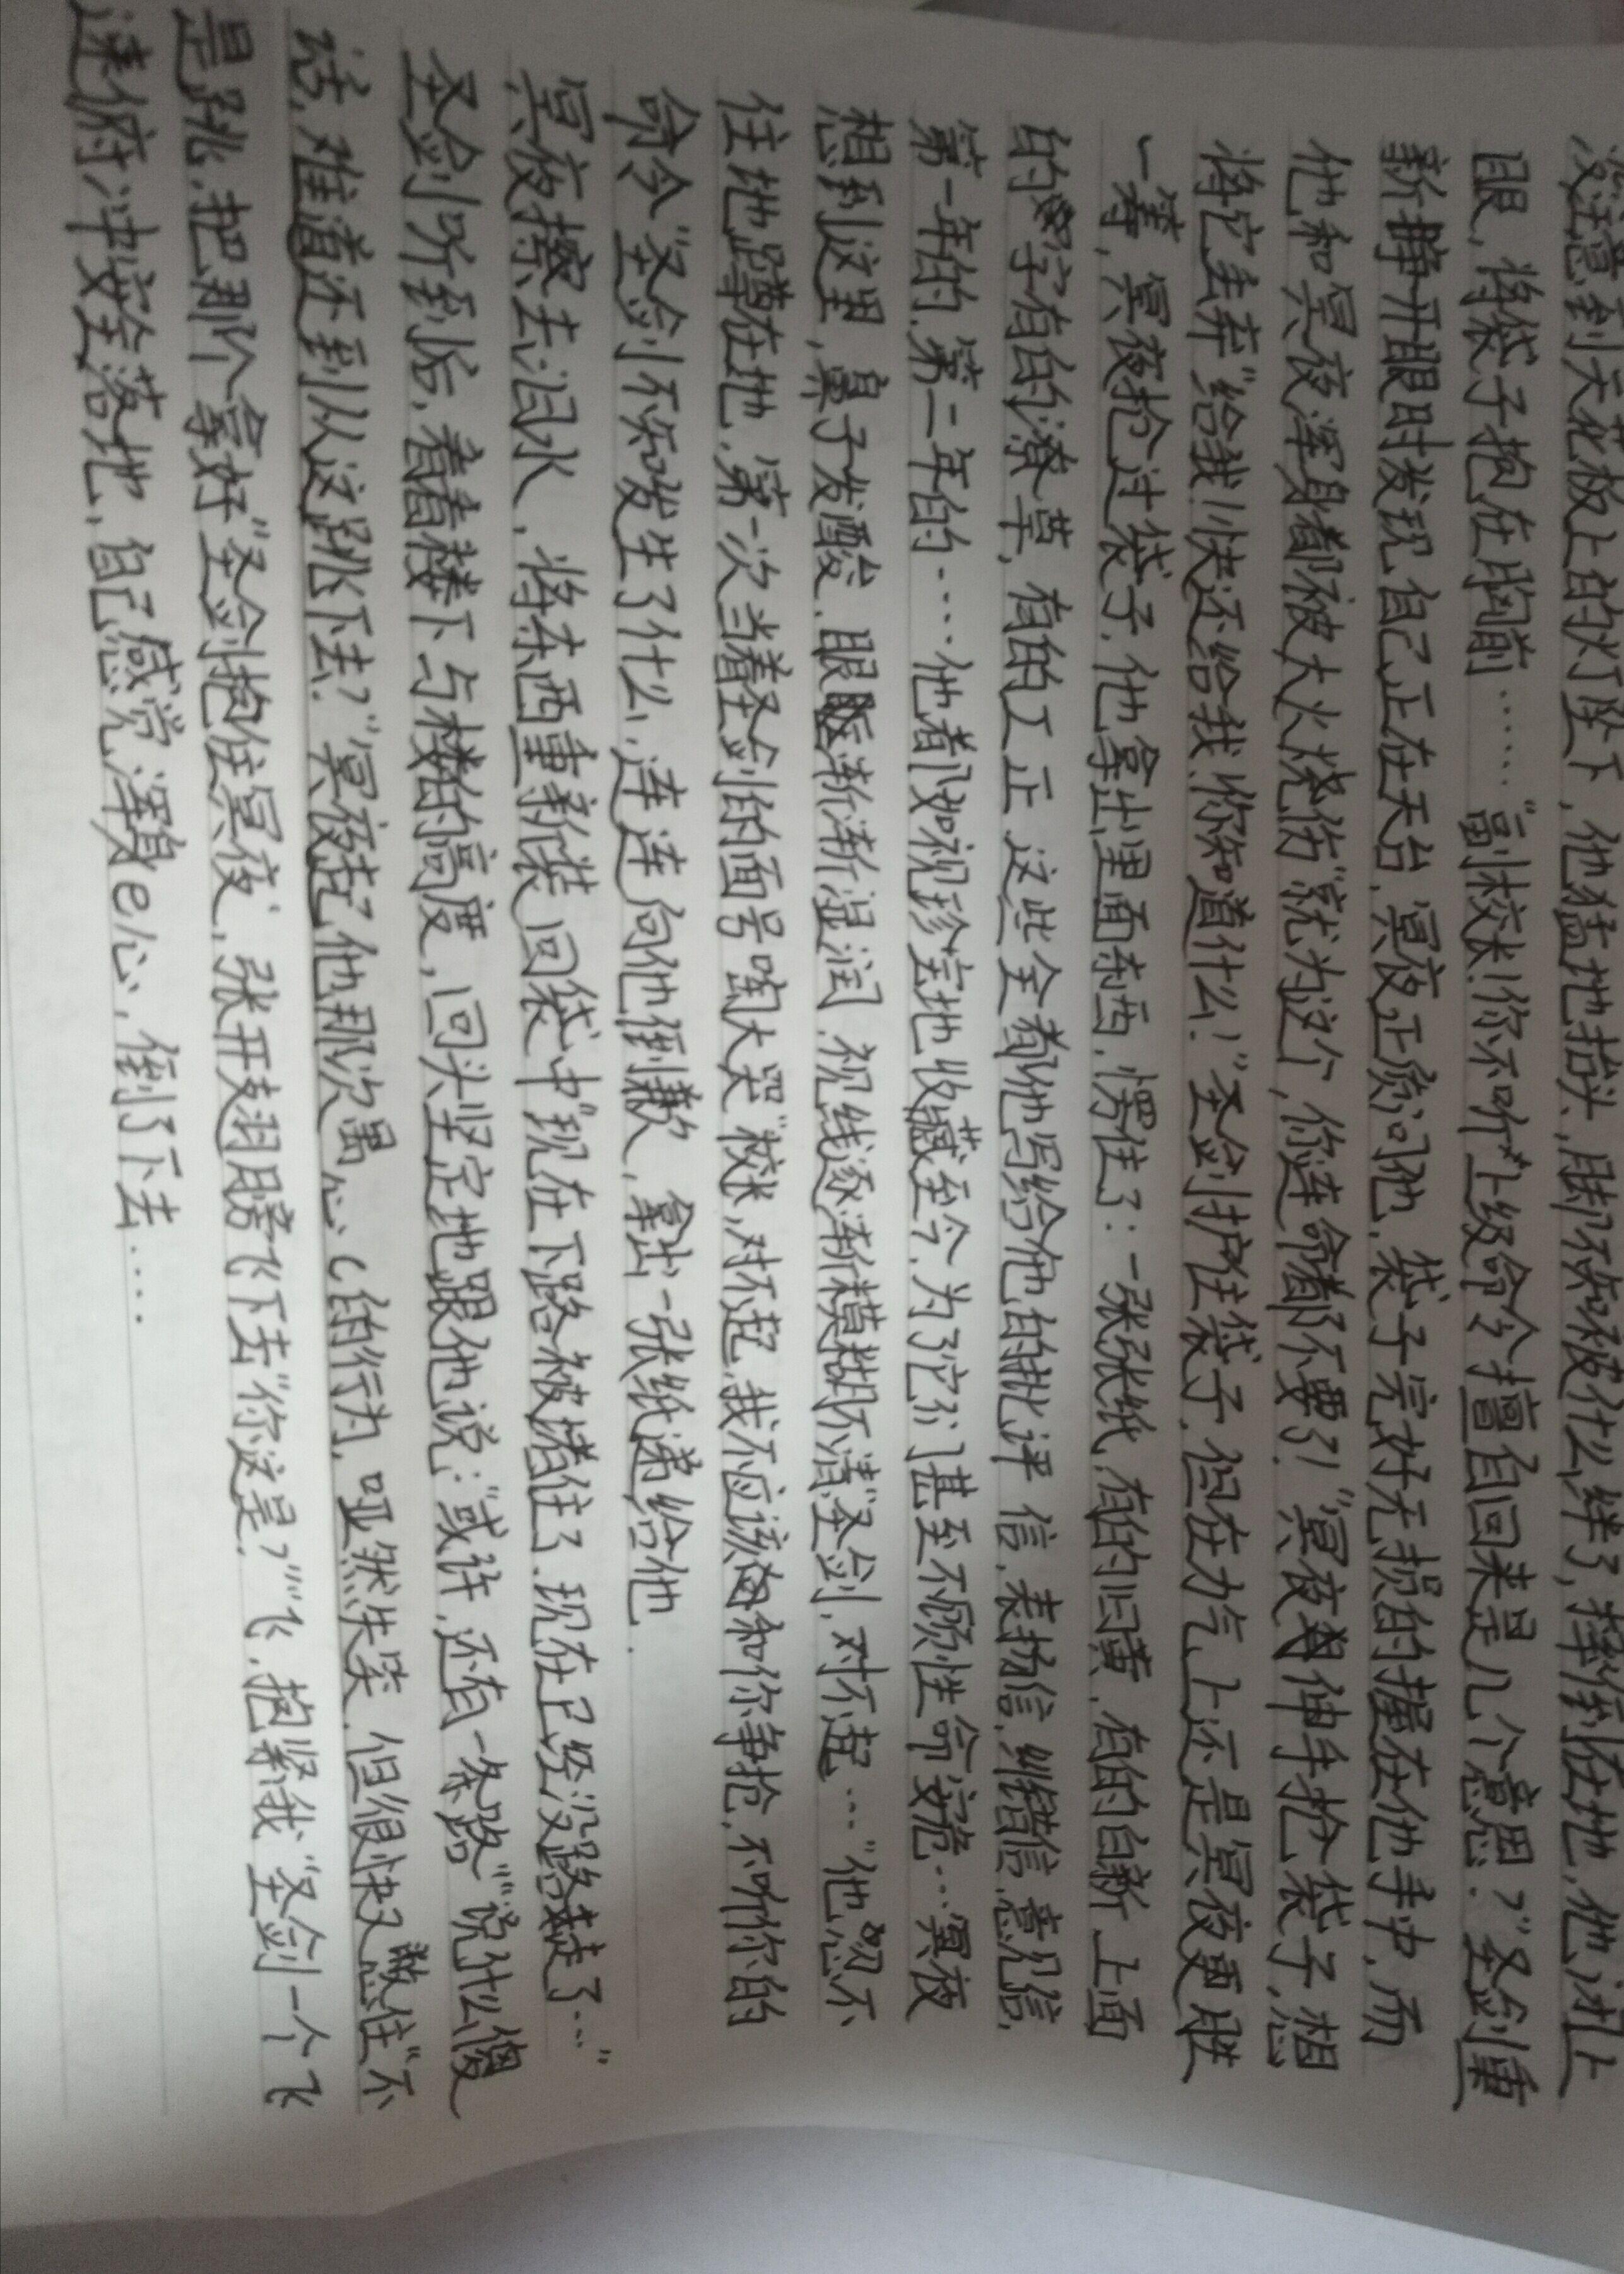 没注意到天花板上的火灯坠下，他猛地抬头，却不知被什么绊了，摔倒在地，他闭上
眼，将袋子抱在胸前……“副校长！你不听上级命令擅自回来是几个意思？”圣剑重
新睁开眼时发现自己正在天台，冥夜正质问他，袋子完好无损的握在他手中，而
他和冥夜浑身都被大火烧伤“就为这个，你连命都不要了！”冥夜伸手抢袋子，想
将它丢弃“给我！快还给我！你知道什么！”圣剑护住袋子，但在力气上还是冥夜更胜
一筹，冥夜抢过袋子，他拿出里面东西，愣住了：一张张纸，有的旧黄，有的白新 上面
的字有的潦草，有的工正 这些全都他写给他的批评信，表扬信，纠错信，意见信，
第一年的，第二年的……他都如视珍宝地收藏至今，为了它们甚至不顾性命安危…冥夜
想到这里，鼻子发酸，眼眶渐渐湿润，视线逐渐模糊不清“圣剑，对不起…”他忍不
住地蹲在地，第一次当着圣剑的面号啕大哭“校长，对不起，我不应该和你争抢，不听你的
命令”圣剑不知发生了什么，连连向他倒歉，拿出一张纸递给他.
冥夜擦去泪水，将东西重新装回袋中“现在下路被堵住了，现在已经没路走了…”
圣剑听到后，看着楼下与楼的高度，回头坚定地跟他说：“或许，还有一条路”“说什么傻
话，难道还到从这跳下去？”冥夜想起了他那次愚心（的行为，哑然失笑，但很快又憋住“不
是跳，把那个拿好”圣剑抱住冥夜，张开翅膀飞下去“你这是？”“飞，抱紧我”圣剑一个飞
速俯冲安全落地，自己感觉浑身e心，倒了下去……